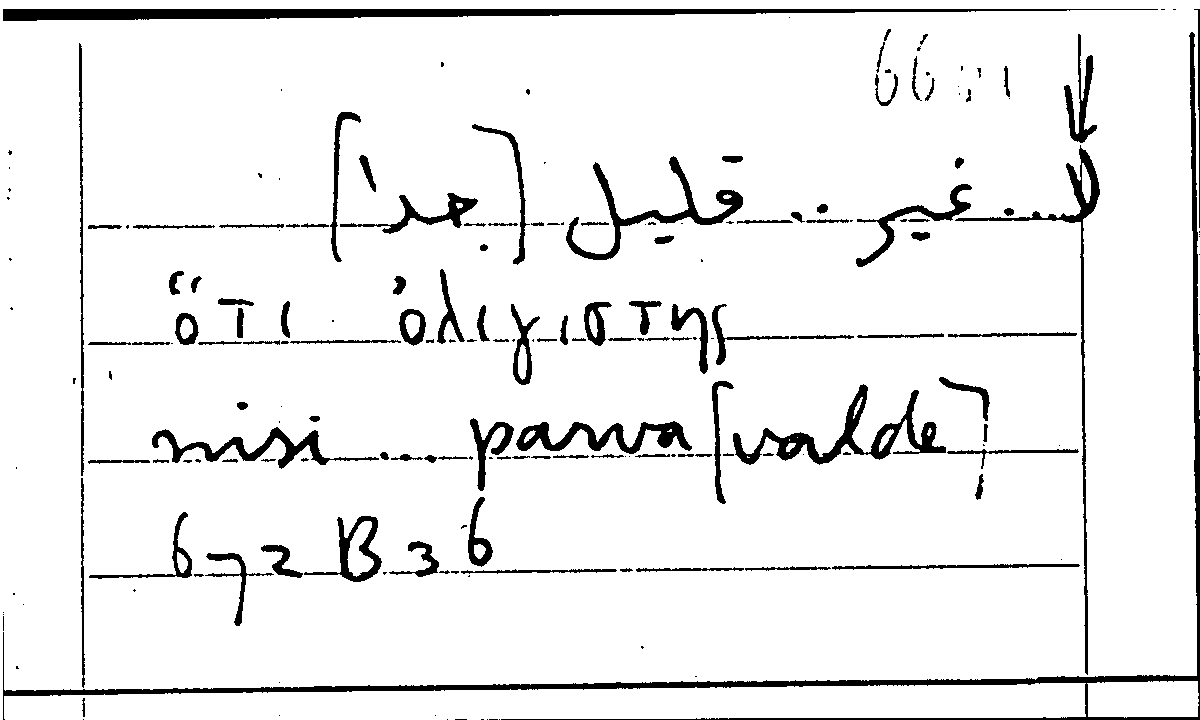 لا... غير.. قليل [جداً]
ὅτι ὀλιγίστης
nisi ... parva [valde]
672 B 36